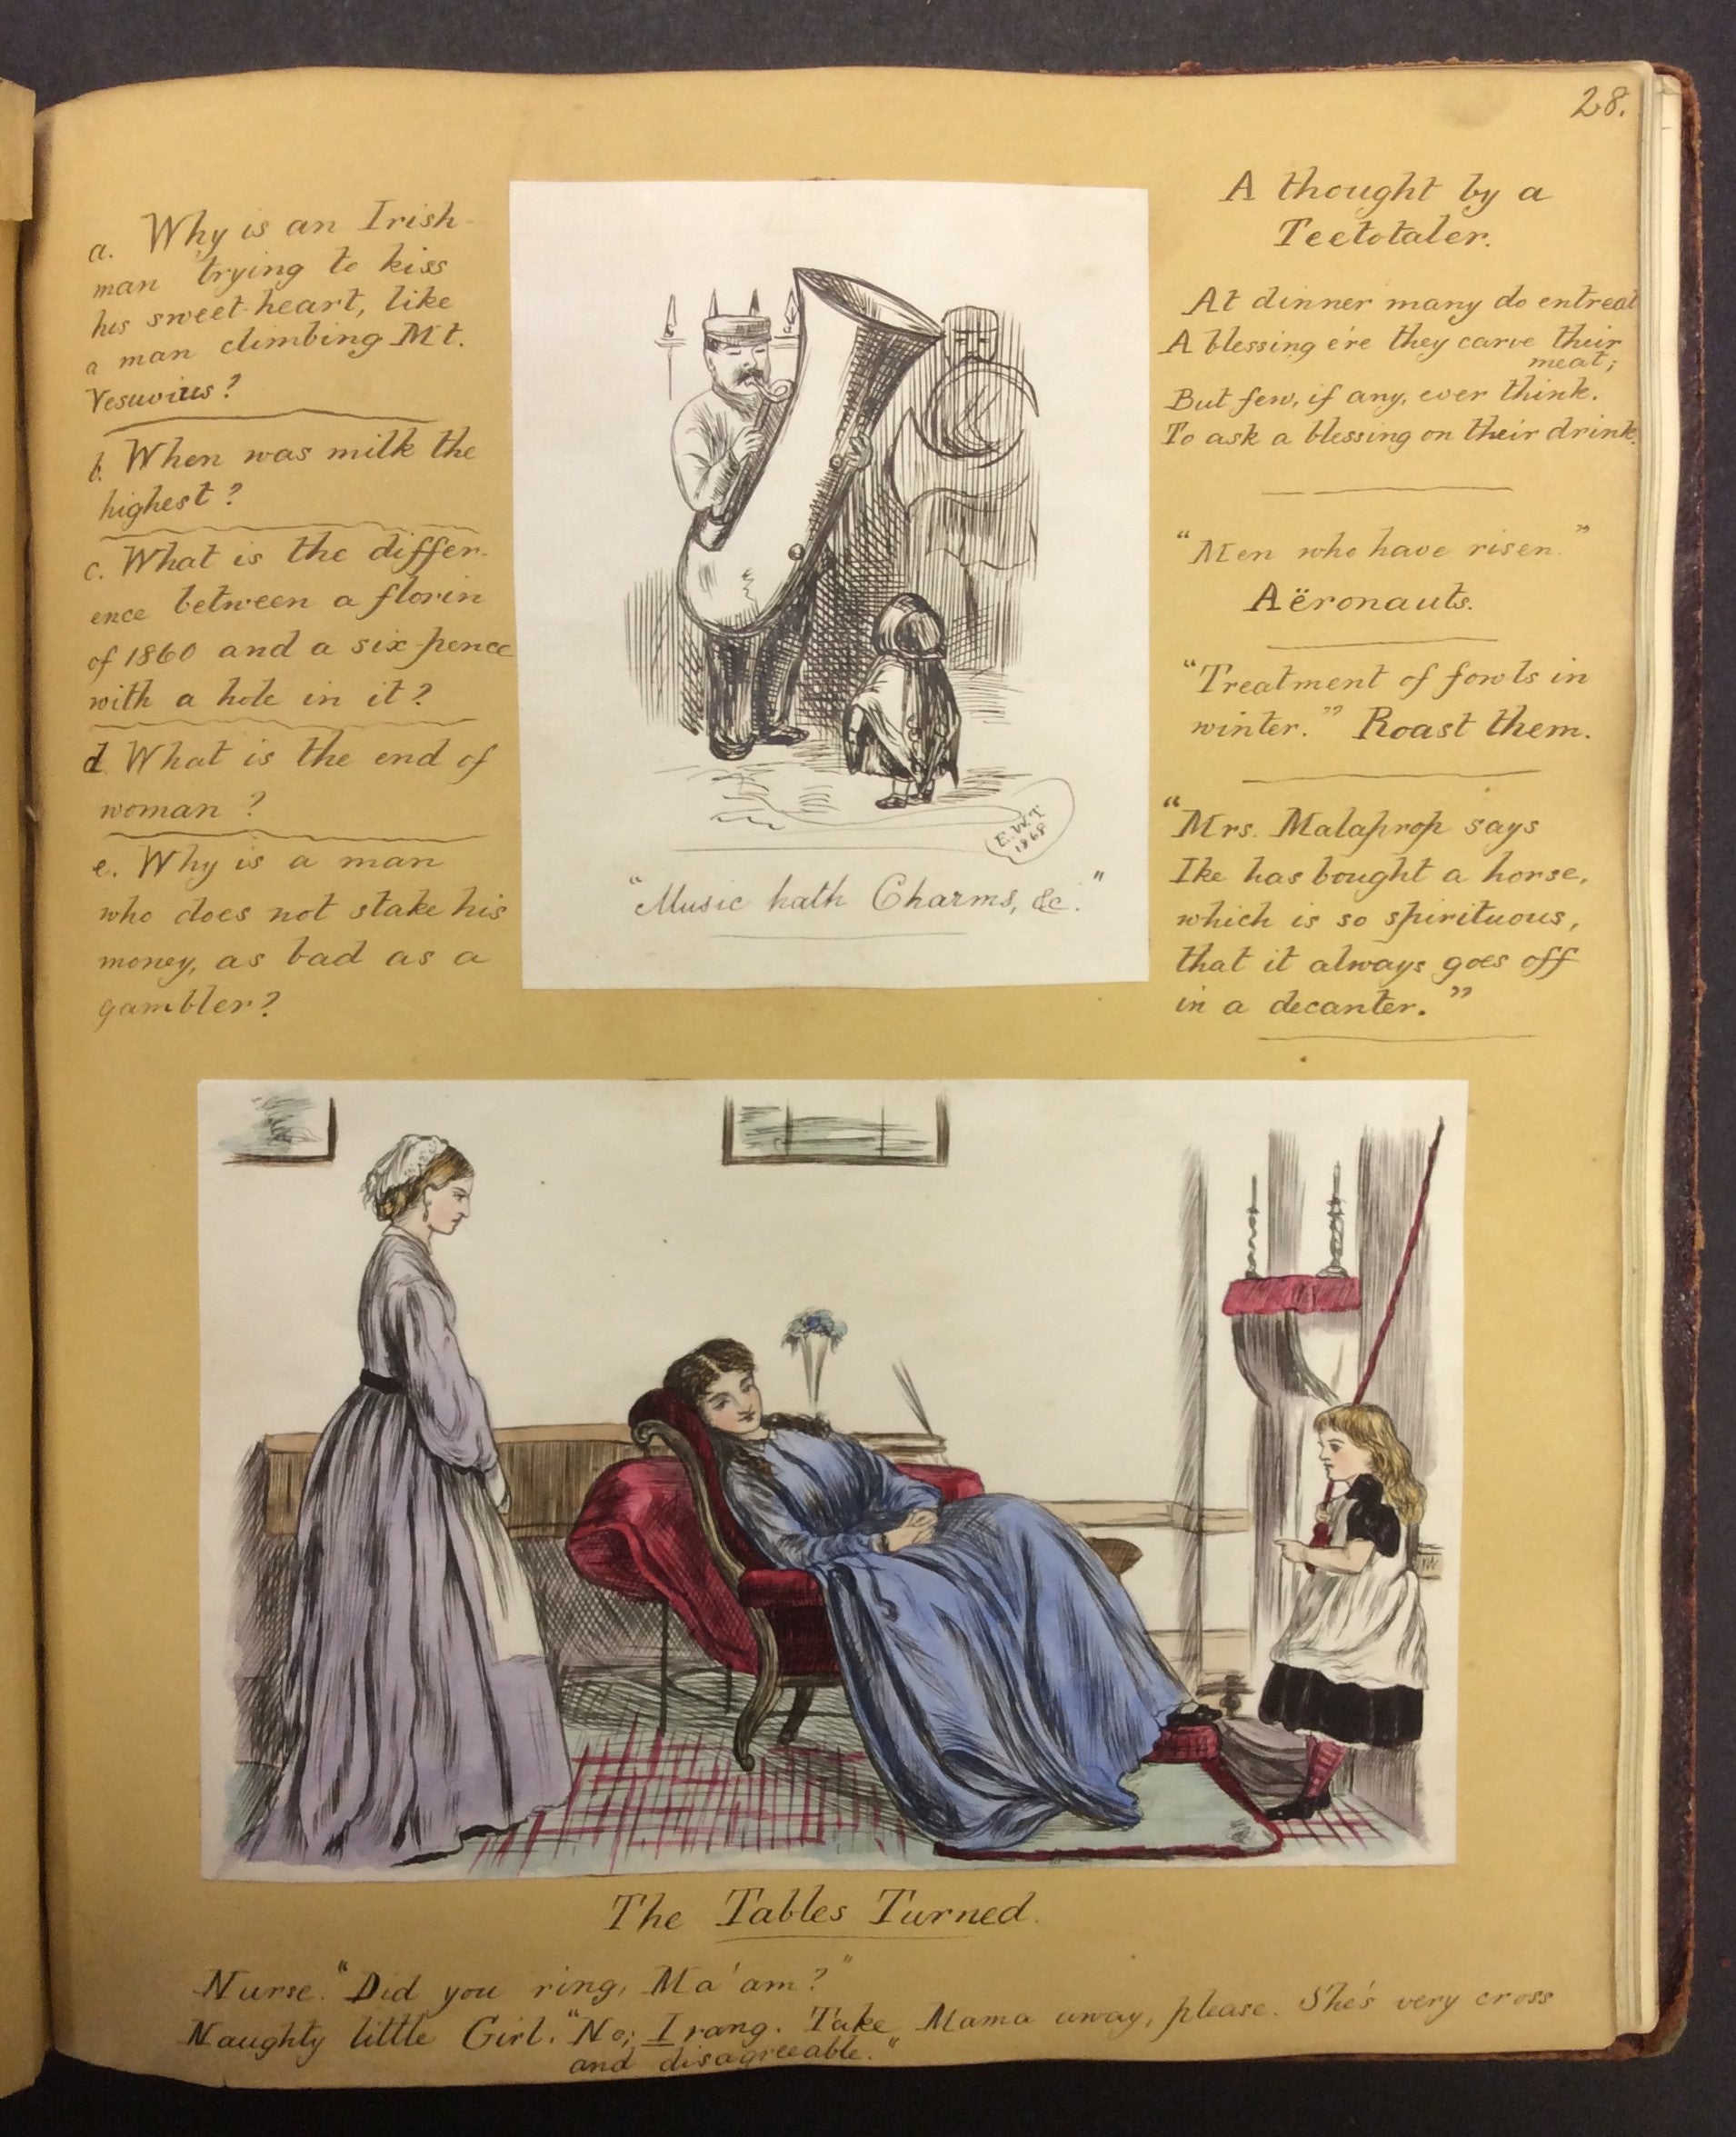 28.
a. Why is an Irish-
man trying to kiss
his sweet-heart, like
a man climbing Mt.
Vesuvius?
b. When was milk the
highest?
c. What is the differ-
ence between a florin
of 1860 and a six-pence
with a hole in it?
d. What is the end of
woman?
e. Why is a man
who does not stake his
money, as bad as a
gambler?
E.W.T
1868
"Music hath Charms, &c."
A thought by a
Teetotaler.
At dinner many do entreat
A blessing e're they carve their
meat;
But few, if any, ever think.
To ask a blessing on their drink.
"Men who have risen."
Aëronauts.
"Treatment of fowls in
winter." Roast them.
"Mrs. Malaprop says
Ike has bought a horse,
which is so spirituous,
that it always goes off
in a decanter."
The Tables Turned.
Nurse. "Did you ring, Ma'am?"
Naughty little Girl. "No; I rang. Take Mama away, please. She's very cross
and disagreeable."